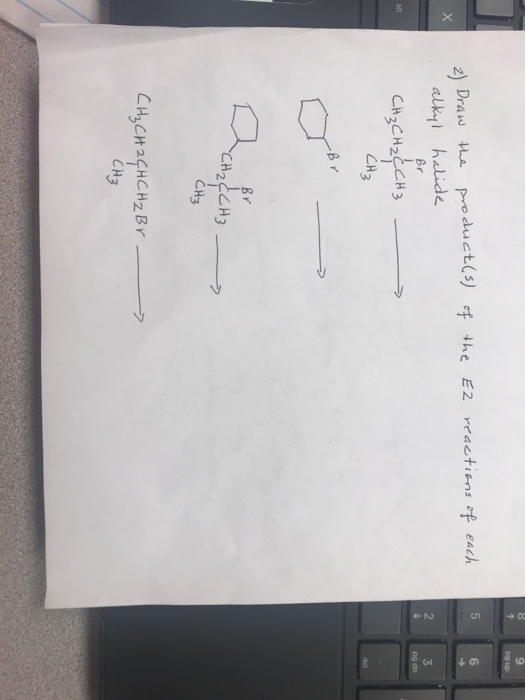 2) Draw the product(s) of the E2 reactions of each
alkyl halide
Br
CH3CH2CCH3
CH3
Br
Br
CH2CCH3
CH3
CH3CH2CHCH2Br
CH3
alt
X
8
9
pg up
5
6
2
3
pg dn
del